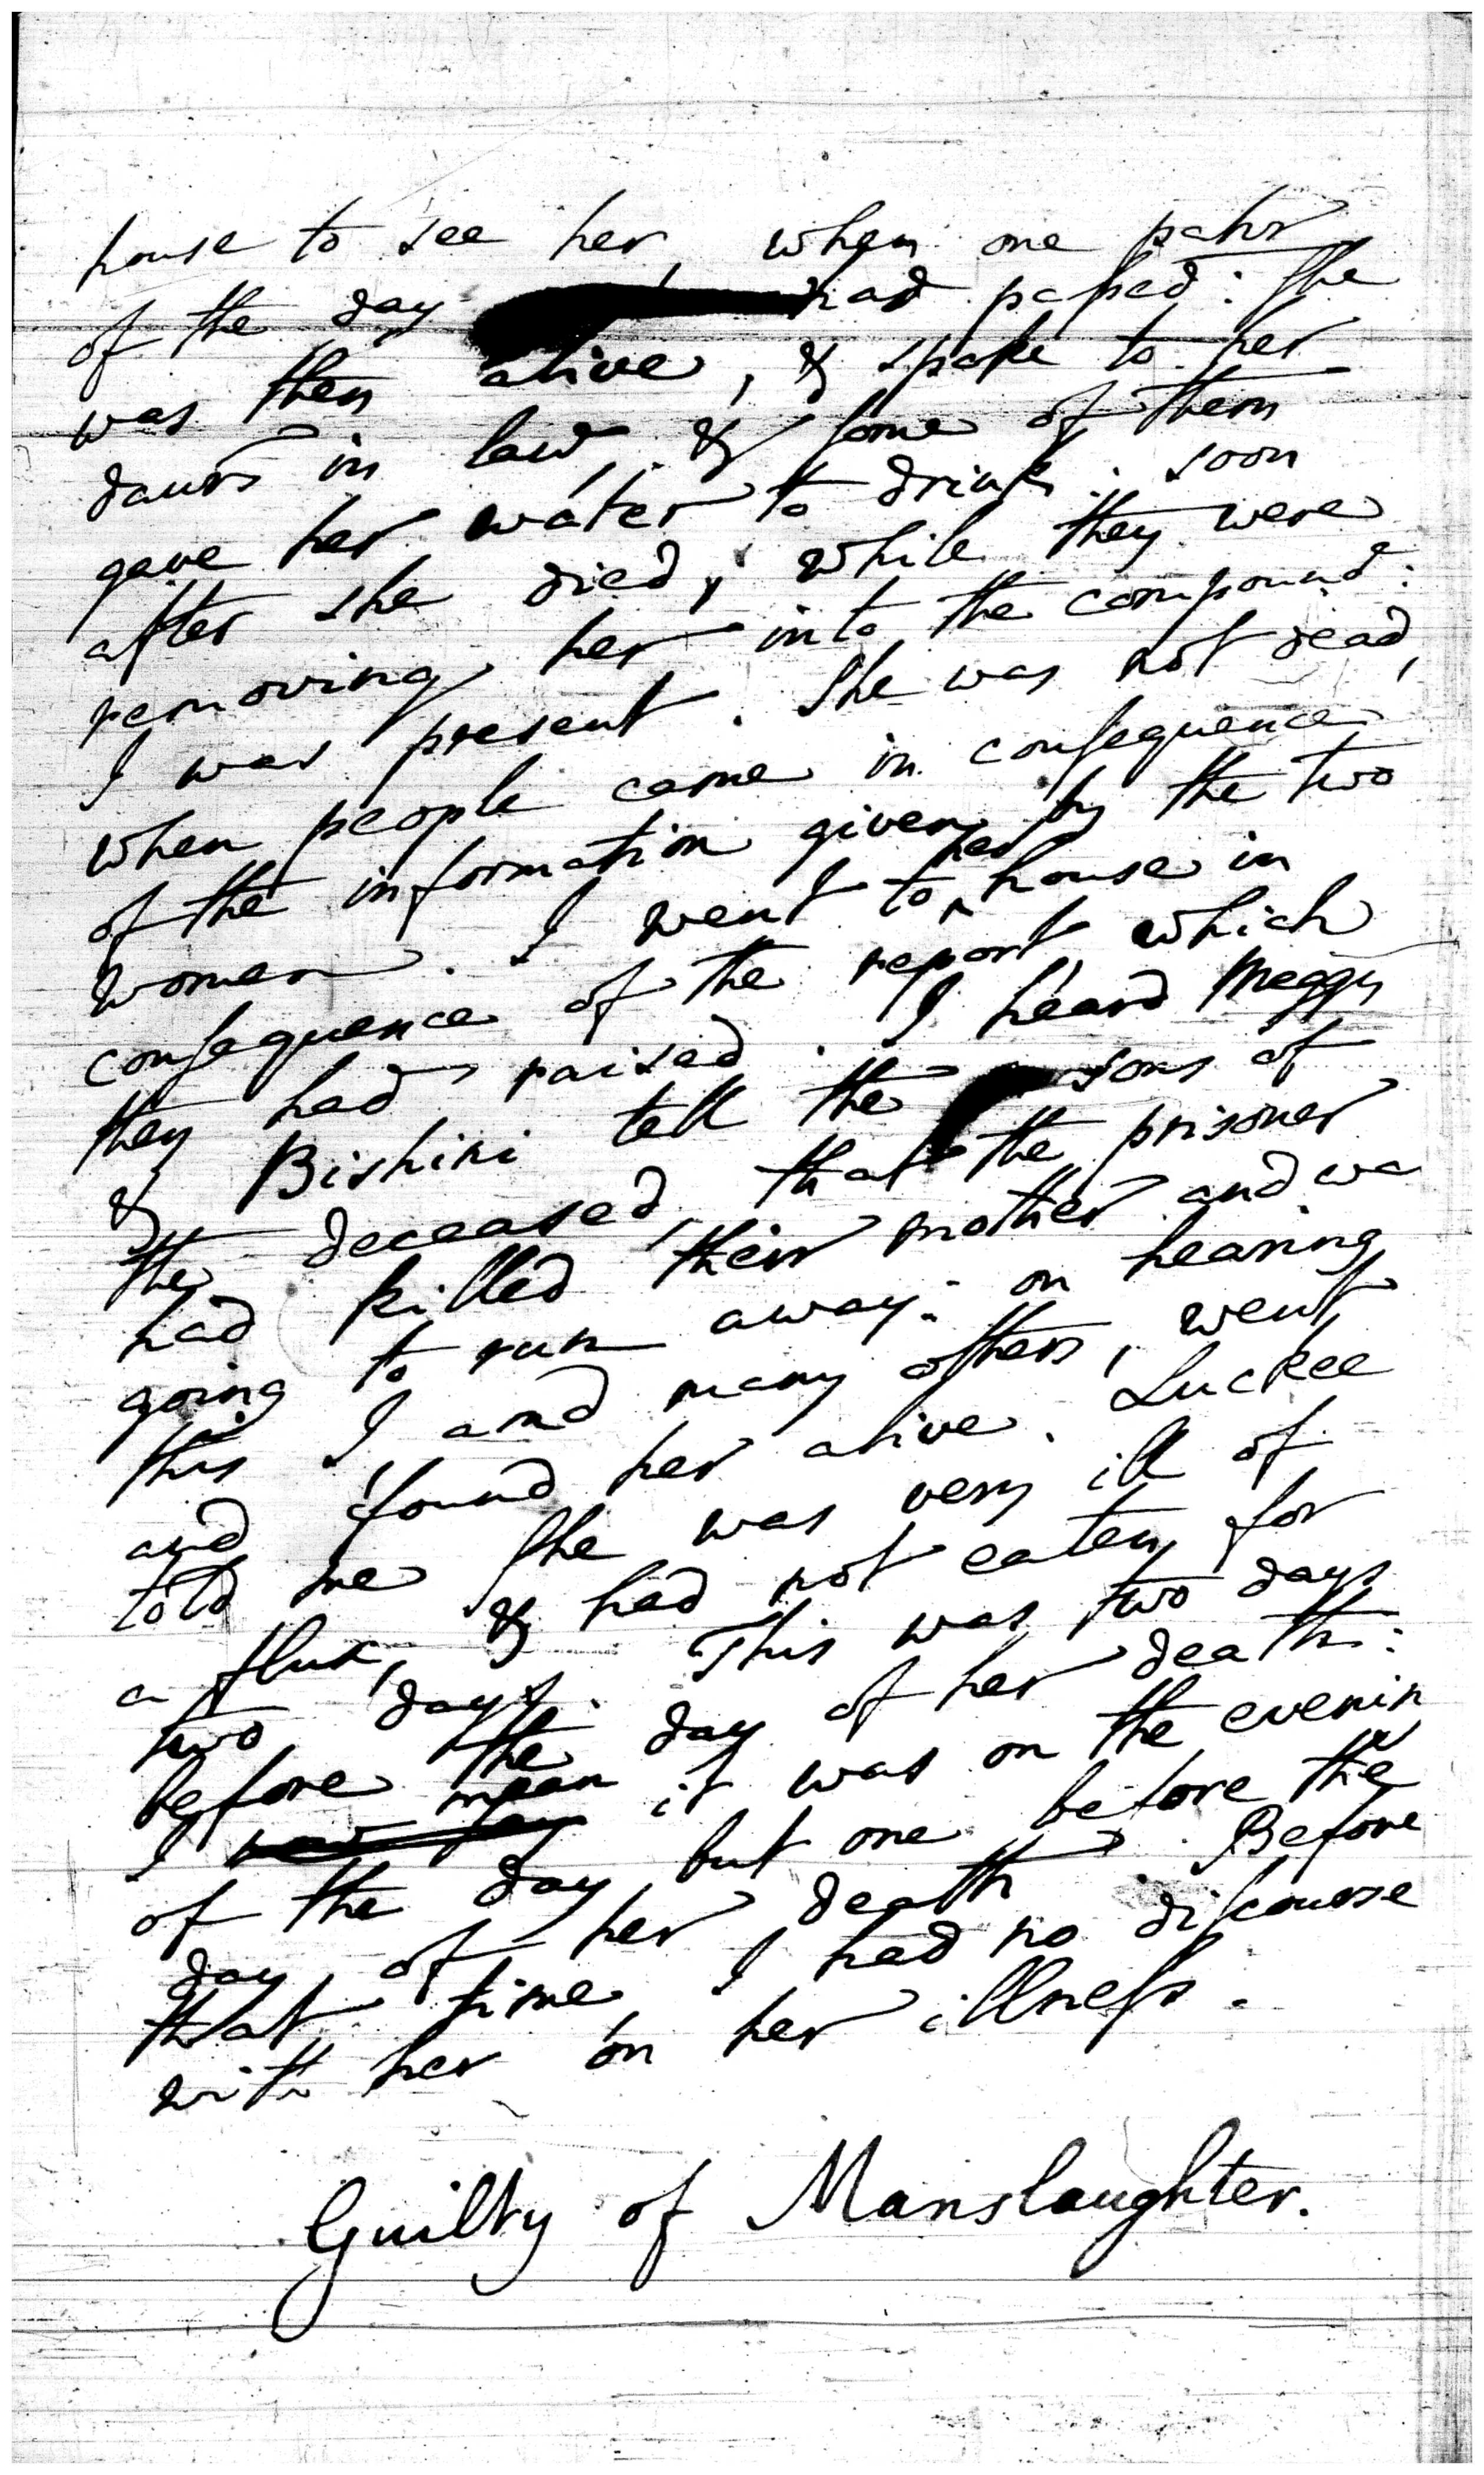 house to see her, when one pahr
of the day had paſsed: She
was then alive, & spoke to her
daurs in law, & some of them
gave her water to drink: soon
after she died, while they were
removing her into the compound:
I was present. She was not dead,
when people came in conſequence
of the information given by the two
women. I went to her house in
conſequence of the report, which
they had raised. I heard Meggy
& Bishini tell the sons of
the deceased, that the prisoner
had killed their mother and wa
going to run away: on hearing
this I and many others, went
and found her alive. Luckee
told me She was very ill of
a flux, & had not eaten for
two days. This was two days
before the day of her death:
I mean it was on the evenin
of the day but one before the
day of her death. Before
that time I had no diſcourse
with her on her illneſs.
Guilty of Manslaughter.